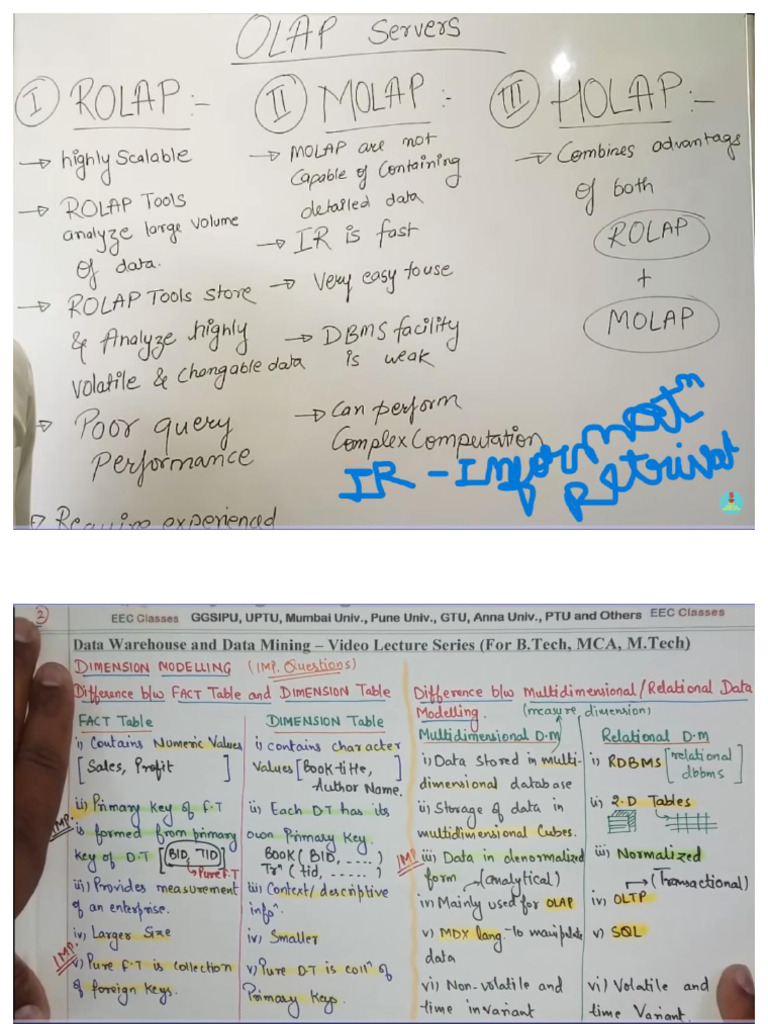 OLAP Servers
I ROLAP :-
→ highly Scalable
→ ROLAP Tools
analyze large volume
of data.
→ ROLAP Tools store
& Analyze highly
volatile & Changable data
→ Poor query
Performance
→ Require experienced
II MOLAP :-
→ MOLAP are not
Capable of Containing
detailed data
→ IR is fast
→ Very easy to use
→ DBMS facility
is weak
→ Can perform
Complex Computation
III HOLAP :-
→ Combines advantags
of both
ROLAP
+
MOLAP
IR - Informatⁿ
Retrival
2
EEC Classes GGSIPU, UPTU, Mumbai Univ., Pune Univ., GTU, Anna Univ., PTU and Others EEC Classes
Data Warehouse and Data Mining – Video Lecture Series (For B.Tech, MCA, M.Tech)
DIMENSION MODELLING (IMP. Questions)
Difference b/w FACT Table and DIMENSION Table
FACT Table
i) Contains Numeric Values
[Sales, Profit ]
ii) Primary Key of F.T
IMP.
is formed from primary
key of D.T [BID, TID]
Pure F.T
iii) Provides measurement
of an enterprise.
iv) Larger Size
IMP.
v) Pure F.T is collection
of foreign Keys.
DIMENSION Table
i) contains character
values [Book-title,
Author Name.]
ii) Each D.T has its
own Primary Key.
BOOK (BID, ....)
Trⁿ (tid, .....)
iii) Context/descriptive
infoⁿ.
iv) Smaller
v) Pure D.T is collⁿ of
Primary Keys.
Difference b/w Multidimensional/Relational Data
Modelling. (measure, dimension)
Multidimensional D.M
i) Data stored in multi-
dimensional database
ii) Storage of data in
multidimensional Cubes.
IMP iii) Data in denormalized
form (analytical)
iv) Mainly used for OLAP
v) MDX lang. to manipulate
data
vi) Non-volatile and
time invariant
Relational D.M
i) RDBMS [relational
dbbms]
ii) 2-D Tables
iii) Normalized
(Transactional)
iv) OLTP
v) SQL
vi) Volatile and
time Variant.